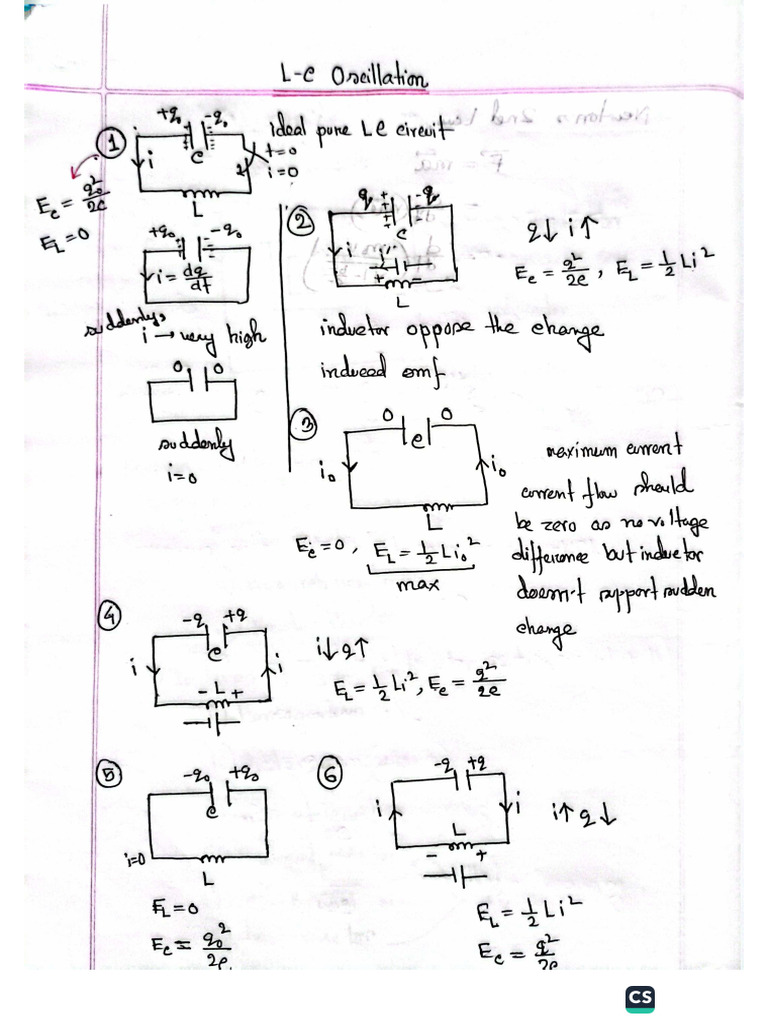 L-C Oscillation
①
+q₀ -q₀
C
i
L
ideal pure LC circuit
t=0
i=0
E_C = q₀²/2C
E_L = 0
+q₀ -q₀
i = dq/dt
suddenly,
i → very high
0 0
suddenly
i=0
②
q -q
C
i
+ -
L
q↓ i↑
E_C = q²/2C , E_L = 1/2 Li²
inductor oppose the change
induced emf
③
0 0
C
i₀ i₀
L
E_C = 0 , E_L = 1/2 Li₀²
max
maximum current
current flow should
be zero as no voltage
difference but inductor
doesn't support sudden
change
④
-q +q
C
i i
- L +
i↓ q↑
E_L = 1/2 Li², E_C = q²/2C
⑤
-q₀ +q₀
C
i=0
L
E_L = 0
E_C = q₀²/2C
⑥
-q +q
i i
L
- +
i↑ q↓
E_L = 1/2 Li²
E_C = q²/2C
CS